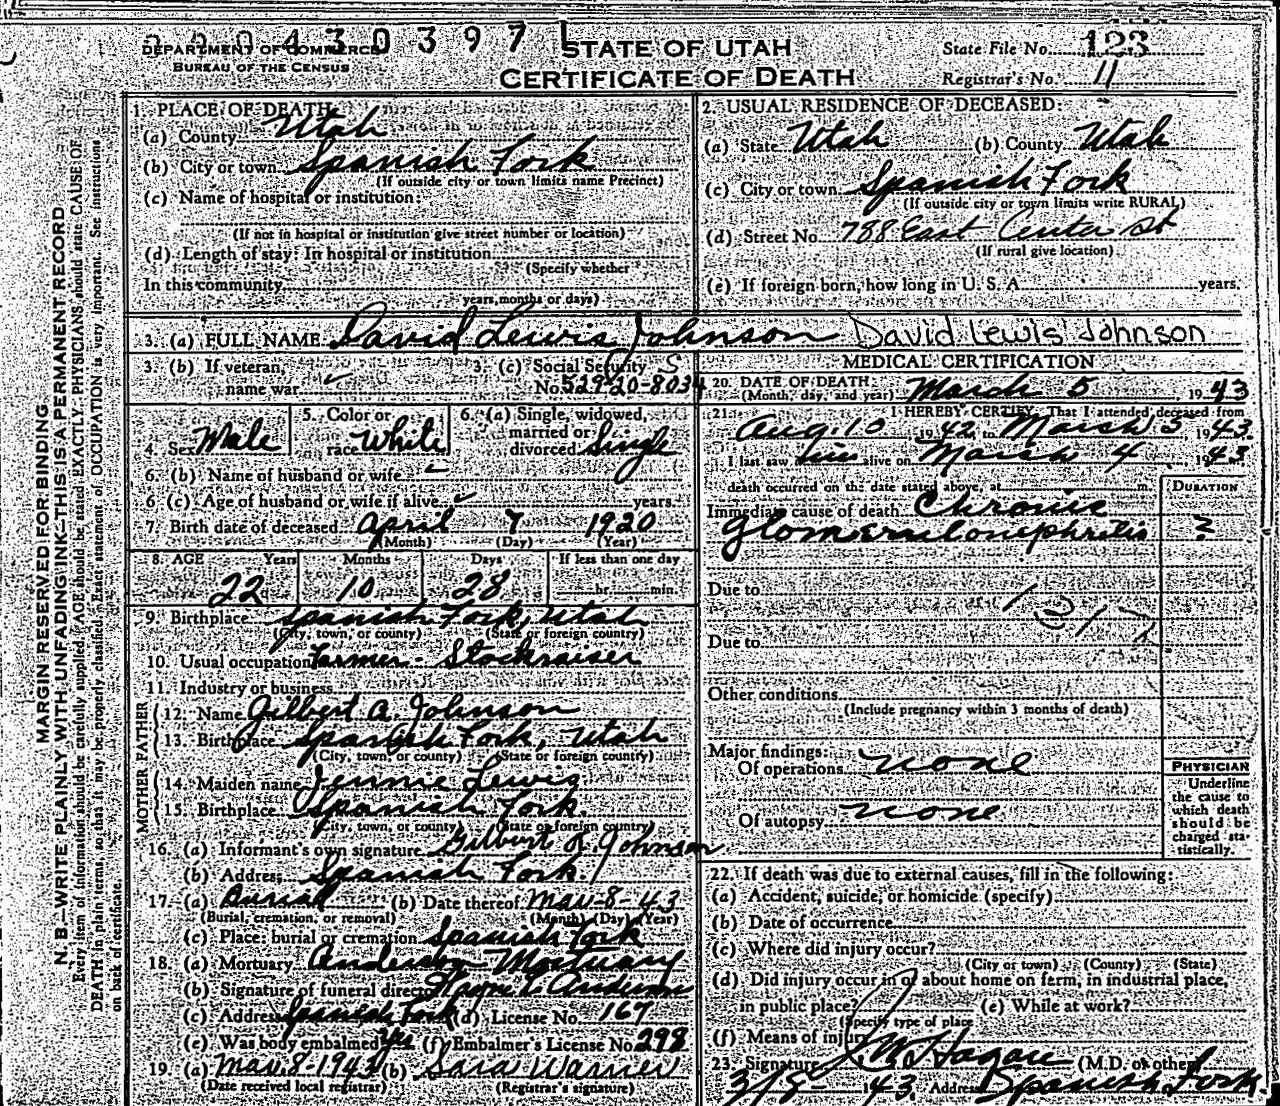 430397
DEPARTMENT OF COMMERCE
BUREAU OF THE CENSUS
STATE OF UTAH
CERTIFICATE OF DEATH
State File No. 123
Registrar's No. 11
MARGIN RESERVED FOR BINDING
N. B.—WRITE PLAINLY WITH UNFADING INK—THIS IS A PERMANENT RECORD
Every item of information should be carefully supplied. AGE should be stated EXACTLY. PHYSICIANS should state CAUSE OF
DEATH in plain terms, so that it may be properly classified. Exact statement of OCCUPATION is very important. See instructions
on back of certificate.
1. PLACE OF DEATH:
(a) County Utah
(b) City or town Spanish Fork
(If outside city or town limits name Precinct)
(c) Name of hospital or institution:
(If not in hospital or institution give street number or location)
(d) Length of stay: In hospital or institution
(Specify whether
In this community
years, months or days)
2. USUAL RESIDENCE OF DECEASED:
(a) State Utah (b) County Utah
(c) City or town Spanish Fork
(If outside city or town limits write RURAL)
(d) Street No. 788 East Center St
(If rural give location)
(e) If foreign born, how long in U. S. A. years.
3. (a) FULL NAME David Lewis Johnson David Lewis Johnson
3. (b) If veteran,
name war
3. (c) Social Security S
No. 529-20-8034
4. Sex Male
5. Color or
race White
6. (a) Single, widowed,
married or
divorced Single
6. (b) Name of husband or wife
6 (c) Age of husband or wife if alive years.
7. Birth date of deceased April 7 1920
(Month) (Day) (Year)
8. AGE Years Months Days If less than one day
22 10 28 hr. min.
9. Birthplace Spanish Fork, Utah
(City, town, or county) (State or foreign country)
10. Usual occupation Farmer - Stockraiser
11. Industry or business
FATHER
12. Name Gilbert A. Johnson
13. Birthplace Spanish Fork, Utah
(City, town, or county) (State or foreign country)
MOTHER
14. Maiden name Jennie Lewis
15. Birthplace Spanish Fork.
(City, town, or county) (State or foreign country)
16. (a) Informant's own signature Gilbert A. Johnson
(b) Address Spanish Fork.
17. (a) Burial (b) Date thereof Mar-8-43
(Burial, cremation, or removal) (Month) (Day) (Year)
(c) Place: burial or cremation Spanish Fork
18. (a) Mortuary Anderson Mortuary
(b) Signature of funeral director Anderson
(c) Address Spanish Fork (d) License No. 167
(e) Was body embalmed Yes (f) Embalmer's License No. 298
19. (a) Mar. 8-1943 (b) Sara Warner
(Date received local registrar) (Registrar's signature)
MEDICAL CERTIFICATION
20. DATE OF DEATH: March 5 1943
(Month, day, and year)
21. I HEREBY CERTIFY, That I attended deceased from
Aug. 10 1942, to March 5 1943.
I last saw him alive on March 4 1943.
death occurred on the date stated above, at m.
DURATION
Immediate cause of death Chronic
Glomerulonephritis ?
Due to
Due to
Other conditions
(Include pregnancy within 3 months of death)
Major findings:
Of operations none
Of autopsy none
PHYSICIAN
Underline
the cause to
which death
should be
charged sta-
tistically.
22. If death was due to external causes, fill in the following:
(a) Accident, suicide, or homicide (specify)
(b) Date of occurrence
(c) Where did injury occur?
(City or town) (County) (State)
(d) Did injury occur in or about home on farm, in industrial place,
in public place? (e) While at work?
(Specify type of place
(f) Means of injury
23. Signature J. M. Hagan (M.D. or other)
3/8 1943. Address Spanish Fork.